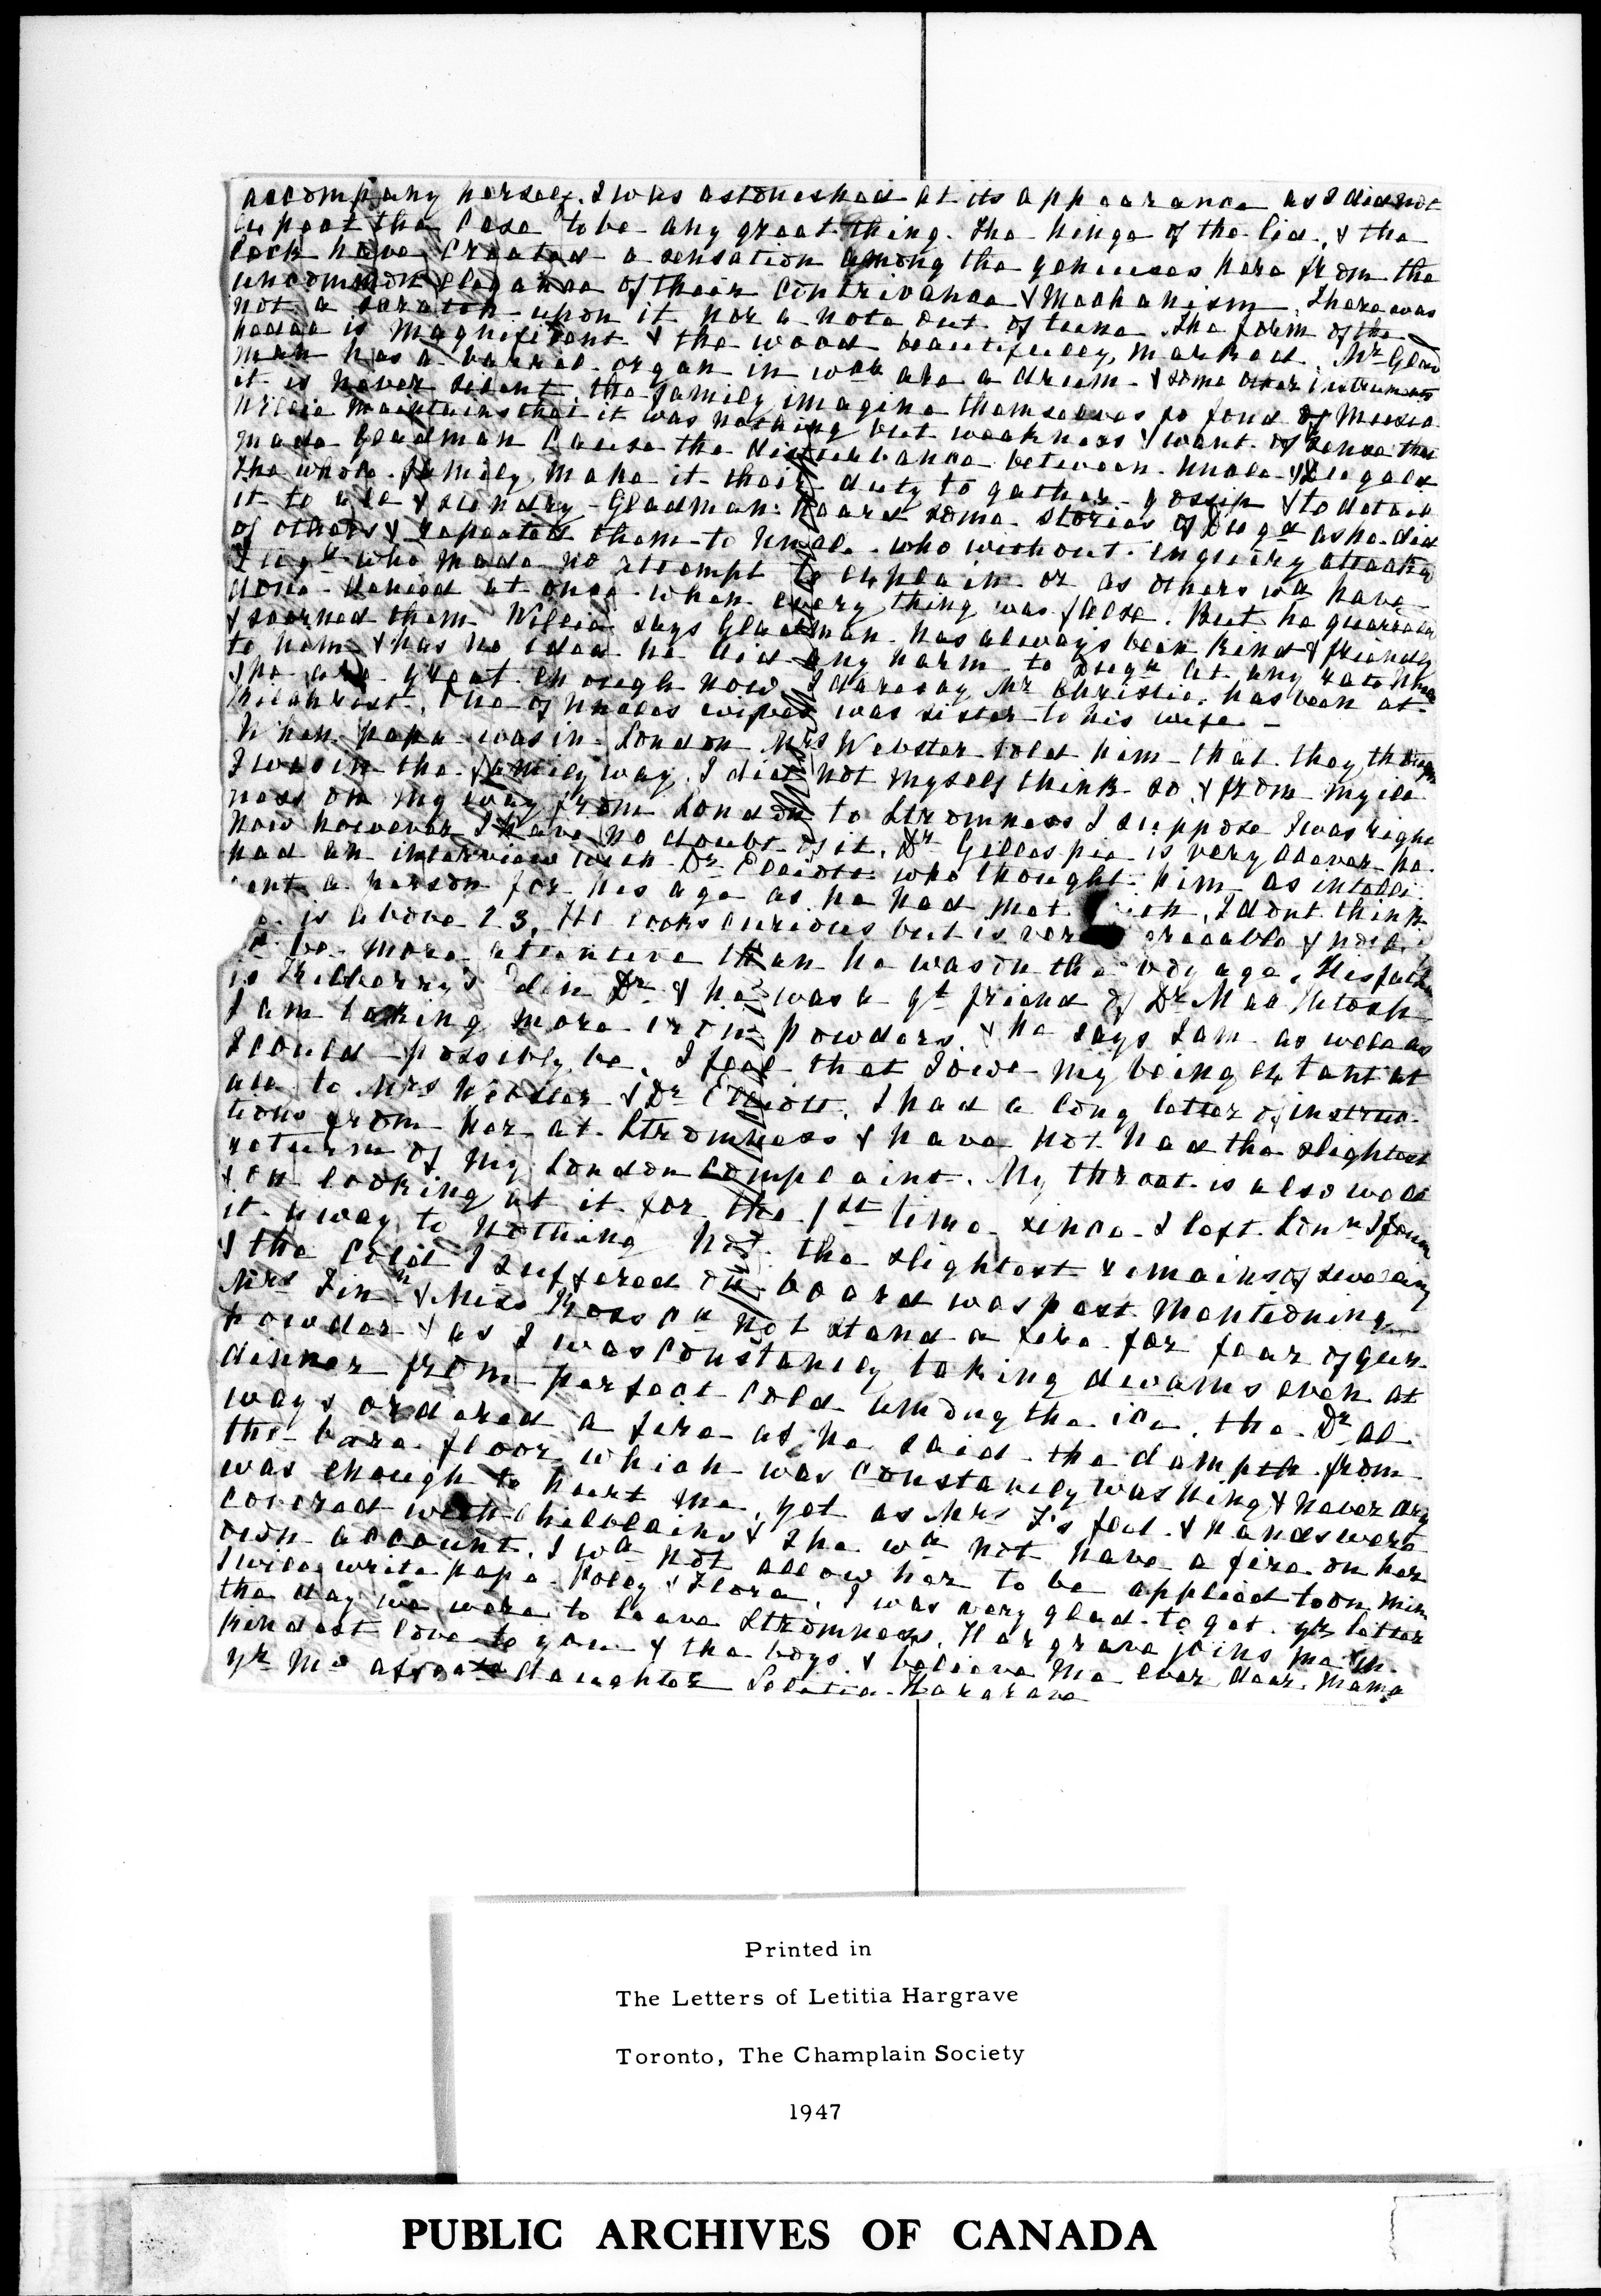 accompany herself. I was astonished at its appearance as I did not
expect the case to be any great thing. The hinge of the lid, & the
lock have created a sensation among the geniuses here from the
uncommon elegance of their contrivance & mechanism. There was
not a scratch upon it nor a note out of tune. The form of the
is magnificent & the wood beautifully marked. Mr Glad
man has a barrel organ in wch are a drum & some other instruments
it is never silent. the family imagine themselves so fond of music
Willie maintains that it was nothing but weakness & want of sense that
made Gladman cause the disturbance between Uncle & Dugald
The whole family make it their duty to gather gossip & to detail
it to all & sundry - Gladman heard some stories of Dugd as he did
of others & repeated them to Uncle who without enquiry attacked
Dugd who made no attempt to explain or as others wd have
done denied at once when every thing was false. But he quarrelled
& scorned them Willie says Gladman has always been kind & friendly
to him & has no idea he did any harm to Dugd at any rate Uncle
& he are great enough now I daresay Mr Christie has been at
Gilchrist. One of Uncles wives was sister to his wife -
When papa was in London Mrs Webster told him that they though
I was in the family way. I did not myself think so & from my ill
ness on my way from London to Stromness I suppose I was right
Now however I have no doubt of it. Dr Gillespie is very clever he
had an interview with Dr Elliott who thought him as intelli
ent a person for his age as he had met I dont think
is above 23. He looks curious but is very greeable &
be more attentive than he was on the voyage. His fath
is Dr & he was a gt friend of Dr MacIntosh
I am taking more iron powders, & he says I am as well as
I could possibly be. I feel that I owe my being extant at
all to Mrs Webster & Dr Elliott. I had a long letter of instruc-
tions from her at Stromness & have not had the slightest
return of my London complaint. My throat is also well
& on looking at it for the 1st time since I left Lonn I foun
it away to nothing not the slightest remains of swelling
& the cold I suffered on board was past mentioning
Mrs Finn & Miss Ross cd not stand a fire for fear of gun
powder & as I was constantly taking dwams even at
dinner from perfect cold among the ice, the Dr al
ways ordered a fire as he said the damp from
the bare floor which was constantly washing & never dry
was enough to hurt me, yet as Mrs F's feet & hands were
covered with chilblains & she wd not have a fire on her
own account. I wd not allow her to be applied to on min
I will write papa Polly & Flora. I was very glad to get yr letter
the day we were to leave Stromness. Hargrave joins me in
kindest love to you & the boys & believe me ever dear Mama
yr mo affecate daughter Letitia Hargrave
Printed in
The Letters of Letitia Hargrave
Toronto, The Champlain Society
1947
PUBLIC ARCHIVES OF CANADA